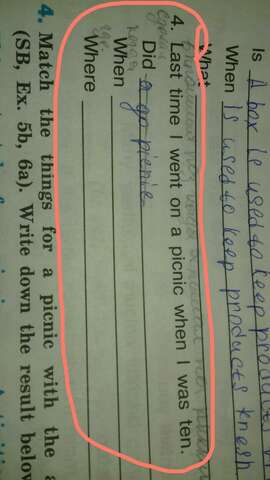 Is A box is used to keep produc
When Is used to keep products knesh
What
4. Last time I went on a picnic when I was ten.
Did a go picnic
When
Where
4. Match the things for a picnic with the
(SB, Ex. 5b, 6a). Write down the result below